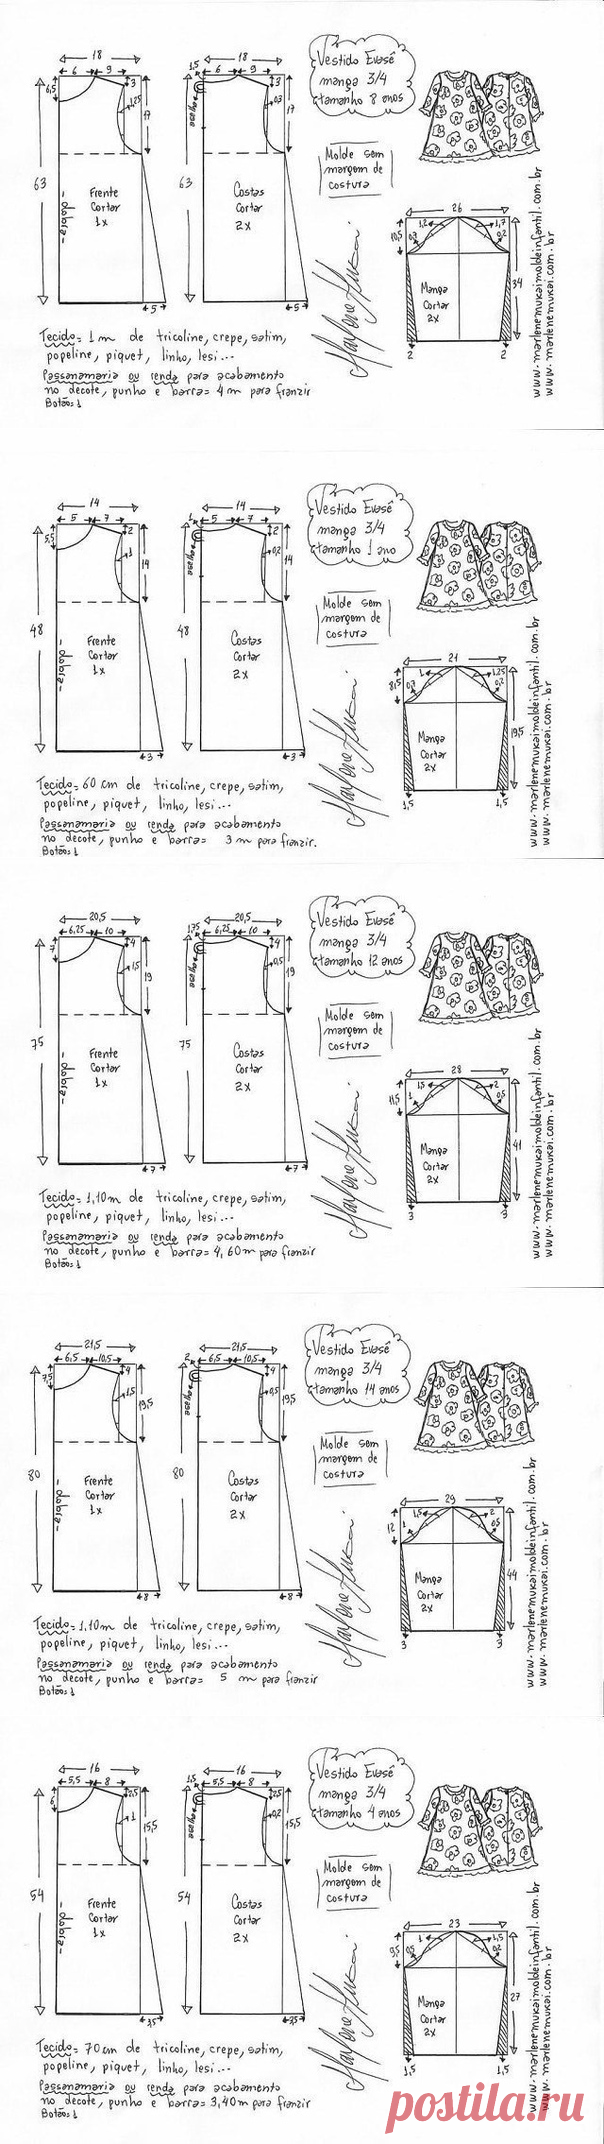 18
6 9
6,5
3
1,25
17
63
Frente
Cortar
1x
- dobra -
5
18
1,5
6 9
3
0,3
17
aselha
63
Costas
Cortar
2x
5
Vestido Evasê
manga 3/4
tamanho 8 anos
Molde sem
margem de
costura
26
10,5
1,2
1,7
0,7
0,2
34
Manga
Cortar
2x
2 2
www.marlenemukaimoldeinfantil.com.br
www.marlenemukai.com.br
Tecido= 1m de tricoline, crepe, satim,
popeline, piquet, linho, lesi...
Passanamaria ou renda para acabamento
no decote, punho e barra= 4m para franzir
Botão:1
14
5 7
5,5
2
1
14
48
Frente
Cortar
1x
- dobra -
3
14
1
5 7
2
0,2
14
aselha
48
Costas
Cortar
2x
3
Vestido Evasê
manga 3/4
tamanho 1 ano
Molde sem
margem de
costura
21
8,5
1
1,25
0,7
0,2
19,5
Manga
Cortar
2x
1,5 1,5
www.marlenemukaimoldeinfantil.com.br
www.marlenemukai.com.br
Tecido= 60 cm de tricoline, crepe, satim,
popeline, piquet, linho, lesi...
Passanamaria ou renda para acabamento
no decote, punho e barra= 3 m para franzir.
Botão:1
20,5
6,25 10
7
4
1,5
19
75
Frente
Cortar
1x
- dobra -
7
20,5
1,75
6,25 10
4
0,5
19
aselha
75
Costas
Cortar
2x
7
Vestido Evasê
manga 3/4
tamanho 12 anos
Molde sem
margem de
costura
28
11,5
1,5
2
1
0,5
41
Manga
Cortar
2x
3 3
www.marlenemukaimoldeinfantil.com.br
www.marlenemukai.com.br
Tecido= 1,10m de tricoline, crepe, satim,
popeline, piquet, linho, lesi...
Passanamaria ou renda para acabamento
no decote, punho e barra= 4,60m para franzir
Botão:1
21,5
6,5 10,5
7,5
4
1,5
19,5
80
Frente
Cortar
1x
- dobra -
8
21,5
2
6,5 10,5
4
0,5
19,5
aselha
80
Costas
Cortar
2x
8
Vestido Evasê
manga 3/4
tamanho 14 anos
Molde sem
margem de
costura
29
12
1,5
2
1
0,5
44
Manga
Cortar
2x
3 3
www.marlenemukaimoldeinfantil.com.br
www.marlenemukai.com.br
Tecido= 1,10m de tricoline, crepe, satim,
popeline, piquet, linho, lesi...
Passanamaria ou renda para acabamento
no decote, punho e barra= 5 m para franzir
Botão:1
16
5,5 8
6
2,5
1
15,5
54
Frente
Cortar
1x
- dobra -
3,5
16
1,5
5,5 8
2,5
0,2
15,5
aselha
54
Costas
Cortar
2x
3,5
Vestido Evasê
manga 3/4
tamanho 4 anos
Molde sem
margem de
costura
23
9,5
1
1,5
0,5
0,2
27
Manga
Cortar
2x
1,5 1,5
www.marlenemukaimoldeinfantil.com.br
www.marlenemukai.com.br
Tecido= 70 cm de tricoline, crepe, satim,
popeline, piquet, linho, lesi...
Passanamaria ou renda para acabamento
no decote, punho e barra= 3,40m para franzir
Botão:1
postila.ru